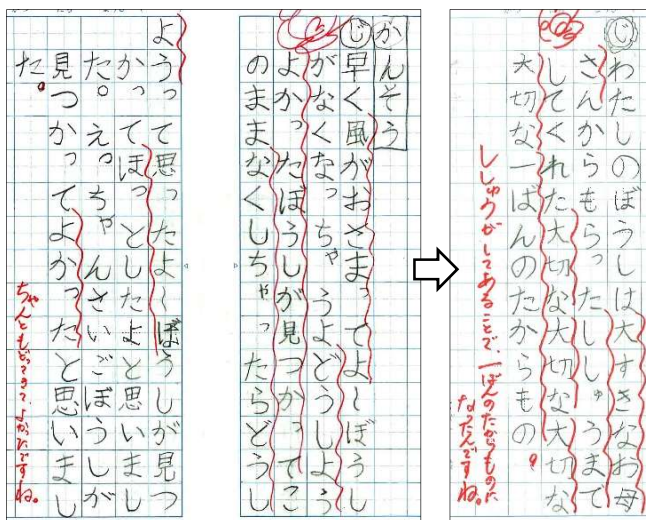 かんそう
じ早く風がおさまってよ〜ぼうし
がなくなっちゃうよどうしよう
よかったぼうしが見つかってこ
のままなくしちゃったらどうし
ようって思ったよ〜ぼうしが見つ
かってほっとしたよと思いまし
た。えっちゃんさいごぼうしが
見つかってよかったと思いまし
た。
ちゃんともどってきて、よかったですね。
じわたしのぼうしは大すきなお母
さんからもらったししゅうまで
してくれた大切な大切な大切な
大切な一ばんのたからもの。
ししゅうがしてあることで、一ばんのたからものに
なったんですね。